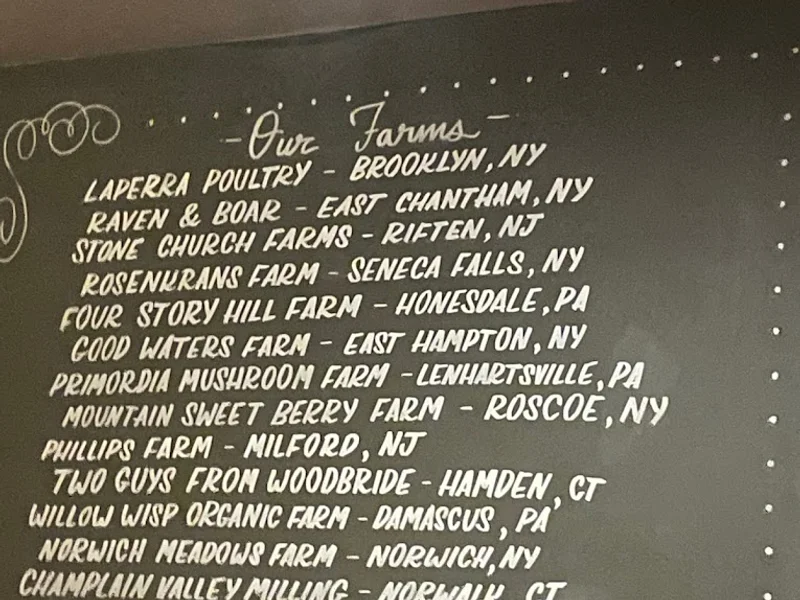 - Our Farms -
LAPERRA POULTRY - BROOKLYN, NY
RAVEN & BOAR - EAST CHANTHAM, NY
STONE CHURCH FARMS - RIFTEN, NJ
ROSENKRANS FARM - SENECA FALLS, NY
FOUR STORY HILL FARM - HONESDALE, PA
GOOD WATERS FARM - EAST HAMPTON, NY
PRIMORDIA MUSHROOM FARM - LENHARTSVILLE, PA
MOUNTAIN SWEET BERRY FARM - ROSCOE, NY
PHILLIPS FARM - MILFORD, NJ
TWO GUYS FROM WOODBRIDE - HAMDEN, CT
WILLOW WISP ORGANIC FARM - DAMASCUS, PA
NORWICH MEADOWS FARM - NORWICH, NY
CHAMPLAIN VALLEY MILLING - NORWALK, CT